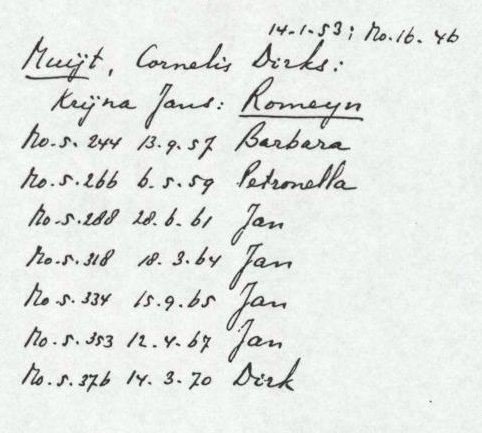 14-1-53; Mo.16-46
Muijt, Cornelis Dirks:
Krijna Jans: Romeyn
Mo.5.244 13.9.57 Barbara
Mo.5.266 6.5.59 Petronella
Mo.5.288 28.6.61 Jan
Mo.5.318 18.3.64 Jan
Mo.5.334 15.9.65 Jan
Mo.5.353 12.4.67 Jan
Mo.5.376 14.3.70 Dirk